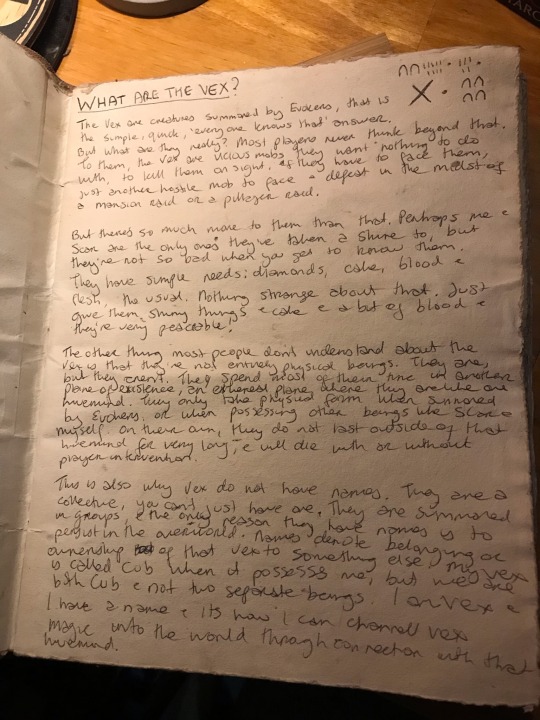 WHAT ARE THE VEX?
X
The Vex are creatures summoned by Evokers, that is
the simple, quick, 'everyone knows that' answer.
But what are they really? Most players never think beyond that.
To them, the vex are vicious mobs they want nothing to do
with, to kill them on sight, if they have to face them,
just another hostile mob to face & defeat in the midst of
a mansion raid or a pillager raid.
But theres so much more to them than that. Perhaps me &
Scar are the only ones they've taken a shine to, but
they're not so bad when you get to know them.
They have simple needs; diamonds, cake, blood &
flesh, the usual. Nothing strange about that. Just
give them shiny things & cake & a bit of blood &
they're very peaceable.
The other thing most people don't understand about the
vex is that they're not entirely physical beings. They are,
but they aren't. They spend most of their time in another
plane of existence, an ethereal plane where they are like one
hivemind. They only take physical form when summoned
by Evokers, or when possessing other beings like Scar &
myself. On their own, they do not last outside of that
hivemind for very long, & will die with or without
player intervention.
This is also why Vex do not have names. They are a
collective, you can't just have one. They are summoned
in groups, & the only reason they have names is to
persist in the overworld. Names denote belonging or
ownership of that vex to something else. My vex
is called Cub when it possesses me, but we are
both Cub & not two separate beings. I am vex &
I have a name & its how I can channel vex
magic into the world through connection with that
hivemind.